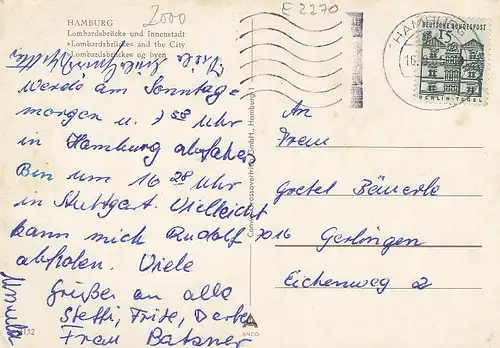 HAMBURG
Lombardsbrücke und Innenstadt
»Lombardsbrücke« and the City
»Lombardsbrücke« og byen
2000
E 2270
HAMBURG
16.
DEUTSCHE BUNDESPOST
15
BERLIN-TEGEL
werde am Sonntag=
morgen u. 7 58 Uhr
in Hamburg abfahren
Bin um 16 28 Uhr
in Stuttgart. Vielleicht
kann mich Rudolf
abholen. Viele
Grüße an alle
Steffi, Fritz,
Frau Batzner
An
Frau
Gretel Bäuerle
7016 Gerlingen
Eichenweg 2
Hamburg 1
ANCO